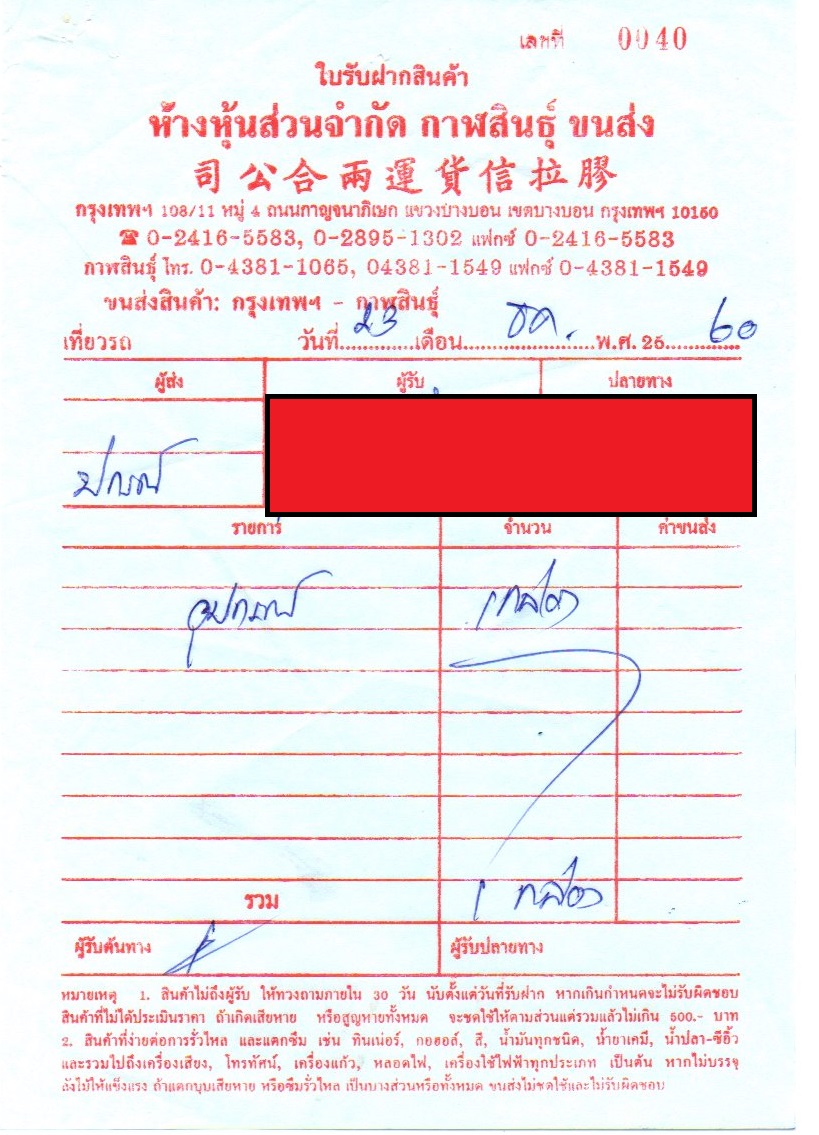 เลขที่ 0040
ใบรับฝากสินค้า
ห้างหุ้นส่วนจำกัด กาฬสินธุ์ ขนส่ง
司公合兩運貨信拉膠
กรุงเทพฯ 108/11 หมู่ 4 ถนนกาญจนาภิเษก แขวงบางบอน เขตบางบอน กรุงเทพฯ 10150
☎ 0-2416-5583, 0-2895-1302 แฟกซ์ 0-2416-5583
กาฬสินธุ์ โทร. 0-4381-1065, 04381-1549 แฟกซ์ 0-4381-1549
ขนส่งสินค้า: กรุงเทพฯ - กาฬสินธุ์
เที่ยวรถ วันที่ 23 เดือน ธค. พ.ศ. 25 60
ผู้ส่ง ผู้รับ ปลายทาง
รายการ จำนวน ค่าขนส่ง
อุปกรณ์ 1 กล่อง
รวม 1 กล่อง
ผู้รับต้นทาง ผู้รับปลายทาง
หมายเหตุ 1. สินค้าไม่ถึงผู้รับ ให้ทวงถามภายใน 30 วัน นับตั้งแต่วันที่รับฝาก หากเกินกำหนดจะไม่รับผิดชอบ
สินค้าที่ไม่ได้ประเมินราคา ถ้าเกิดเสียหาย หรือสูญหายทั้งหมด จะชดใช้ให้ตามส่วนแต่รวมแล้วไม่เกิน 500.- บาท
2. สินค้าที่ง่ายต่อการรั่วไหล และแตกซึม เช่น ทินเน่อร์, กอฮอล์, สี, น้ำมันทุกชนิด, น้ำยาเคมี, น้ำปลา-ซีอิ้ว
และรวมไปถึงเครื่องเสียง, โทรทัศน์, เครื่องแก้ว, หลอดไฟ, เครื่องใช้ไฟฟ้าทุกประเภท เป็นต้น หากไม่บรรจุ
ลังไม้ให้แข็งแรง ถ้าแตกบุบเสียหาย หรือซึมรั่วไหล เป็นบางส่วนหรือทั้งหมด ขนส่งไม่ชดใช้และไม่รับผิดชอบ